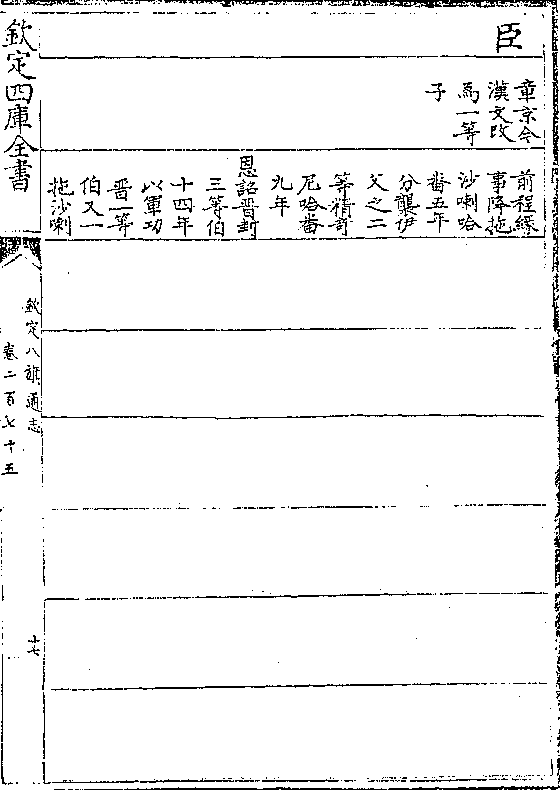 臣
章京今
漢文改
爲一等
子
前程縁
事降拖
沙喇哈
番五年
分襲伊
父之二
等精奇
尼哈番
九年
恩詔晋封
三等伯
十四年
以軍功
晋一等
伯又一
拖沙喇
欽定四庫全書
欽定八旗通志
卷二百七十五
十七